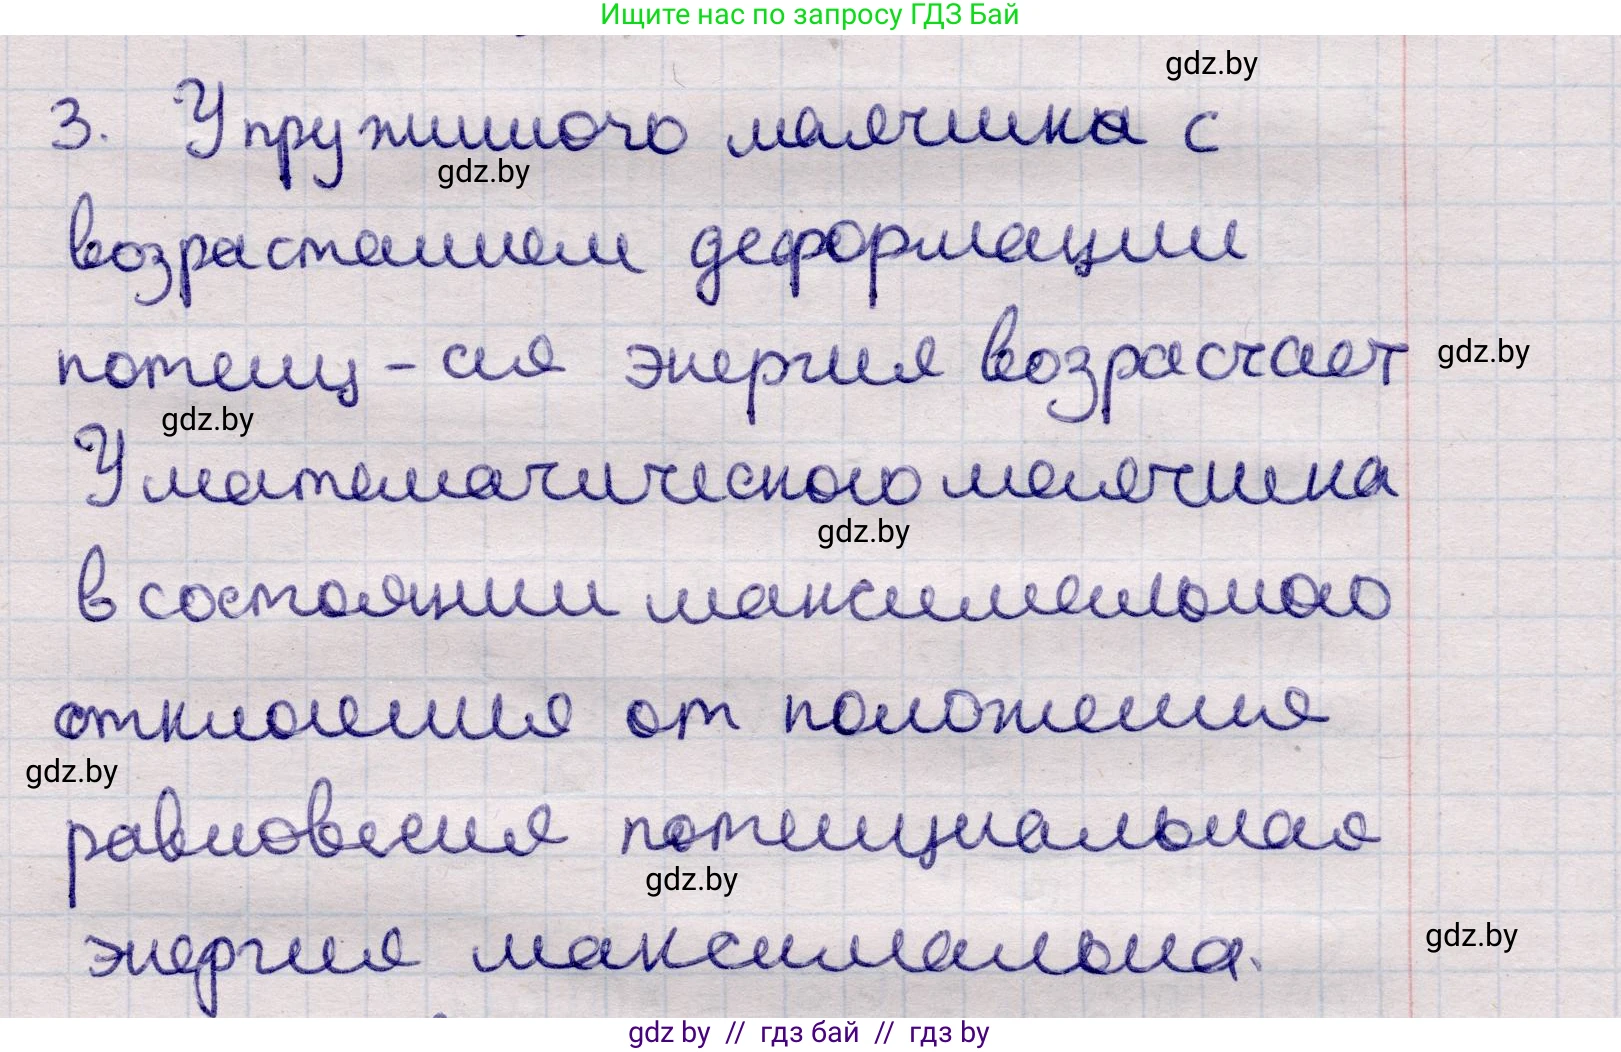 Ищите нас по запросу ГДЗ Бай
gdz.by
3. У пружиного маячника с
gdz.by
возрастанием деформации
потенц-ая энергия возрастает
gdz.by
gdz.by
У математического маятника
gdz.by
в состоянии максимального
отклонения от положения
gdz.by
равновесия потенциальная
gdz.by
энергия максимальна.
gdz.by
gdz by // гдз бай // гдз by